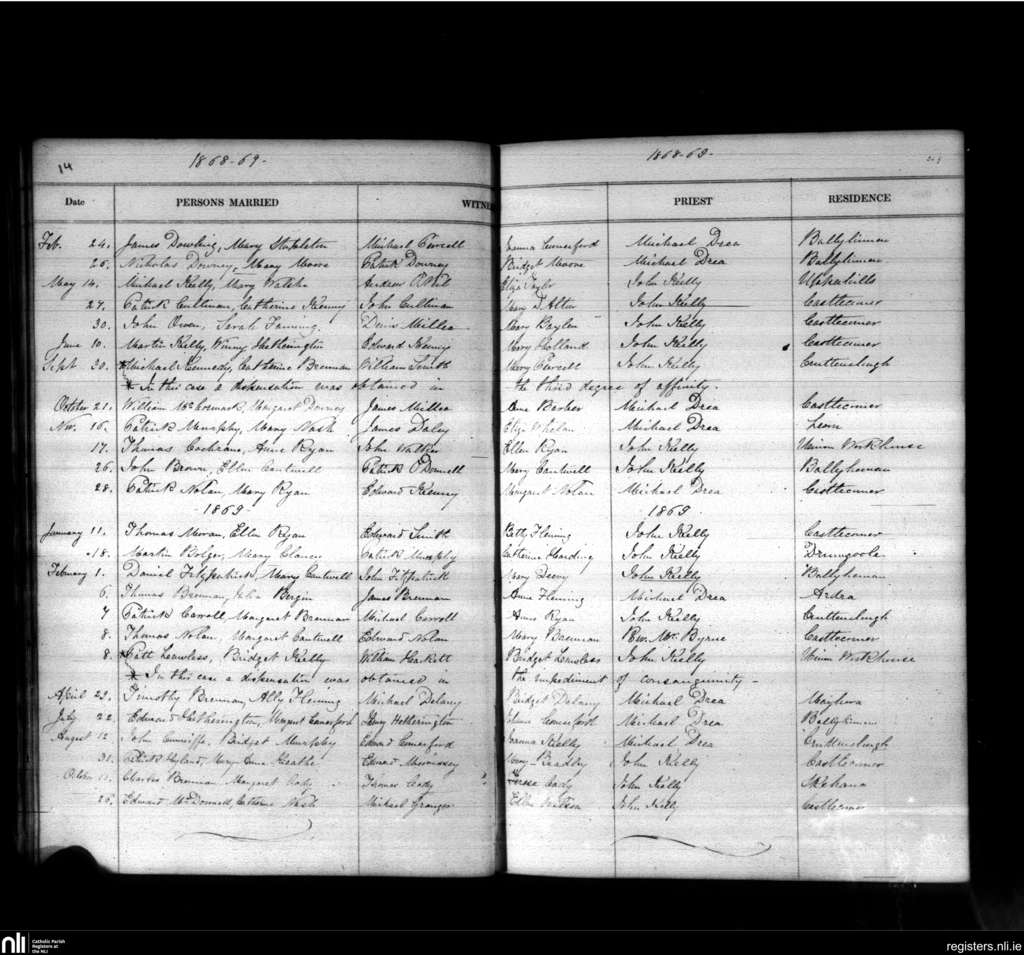 14 1868-69- 1868-69-
Date PERSONS MARRIED WITNE PRIEST RESIDENCE
Feb. 24. James Dowling, Mary Stapleton Michael Purcell Joanna Comerford Michael Drea Ballylinnen
25. Nicholas Downey, Mary Moore Patrick Downey Bridget Moore Michael Drea Ballylinnen
May 14. Michael Kelly, Mary Walshe Andrew Eliza Taylor John Kelly
27. Patrick Culliman, Catherine Kenny John Culliman Mary John Kelly Castlecomer
30. John Owen, Sarah Fanning. Denis Millea Mary John Kelly Castlecomer
June 10. Martin Kelly, Winny Hetherington Edward Kenny Mary Holland John Kelly Castlecomer
Sept 20. *Michael Kennedy, Catherine Brennan William Smith Mary Purcell John Kelly Cruttenclough
* In this case a dispensation was obtained in the third degree of affinity.
October 21. William McCormack, Margaret Downey James Millea Anne Barber Michael Drea Castlecomer
Nov. 16. Patrick Murphy, Mary Nash James Daley Eliza Whelan Michael Drea
17. Thomas Cochrane, Anne Ryan John Walker Ellen Ryan John Kelly Union Workhouse
26. John Brown, Ellen Cantwell Patrick O'Donnell Mary Cantwell John Kelly Ballyhemon
28. Patrick Nolan, Mary Ryan Edward Kenny Margaret Nolan Michael Drea Castlecomer
- 1869 - 1869
January 11. Thomas Moran, Ellen Ryan Edward Smith Betty Fleming John Kelly Castlecomer
18. Martin Bolger, Mary Clancy Patrick Murphy Catherine Harding John Kelly Drumgoole
February 1. Daniel Fitzpatrick, Mary Cantwell John Fitzpatrick Mary John Kelly Ballyhemon
6. Thomas Brennan, Julia Bergin James Brennan Anne Fleming Michael Drea Ardea
7 Patrick Carroll, Margaret Brennan Michael Carroll Anne Ryan John Kelly Cruttenclough
8. Thomas Nolan, Margaret Cantwell Edward Nolan Mary Brennan Rev. Mr. Byrne Castlecomer
8. *Patt Lawless, Bridget Kelly William Hackett Bridget Lawless John Kelly Union Workhouse
* In this case a dispensation was obtained in the impediment of consanguinity -
April 23. Timothy Brennan, Ally Fleming Michael Delany Bridget Delany Michael Drea
July 22. Edward Hetherington, Margaret Comerford Henry Hetherington Comerford Michael Drea Ballylinnen
August 12 John Cunniffe, Bridget Murphy Edward Comerford Joanna Kielly Michael Drea Cruttenclough
31. Patrick Hyland, Mary Anne Heathe Edward Morrissey Mary Bradley John Kelly Castlecomer
October Charles Brennan, Margaret Cody Thomas Cody Cody John Kelly Skehana
25. Edward McDonnell, Catherine Nash Michael Granger Ellen Watson John Kelly Castlecomer
nli Catholic Parish
Registers at
the NLI
registers.nli.ie